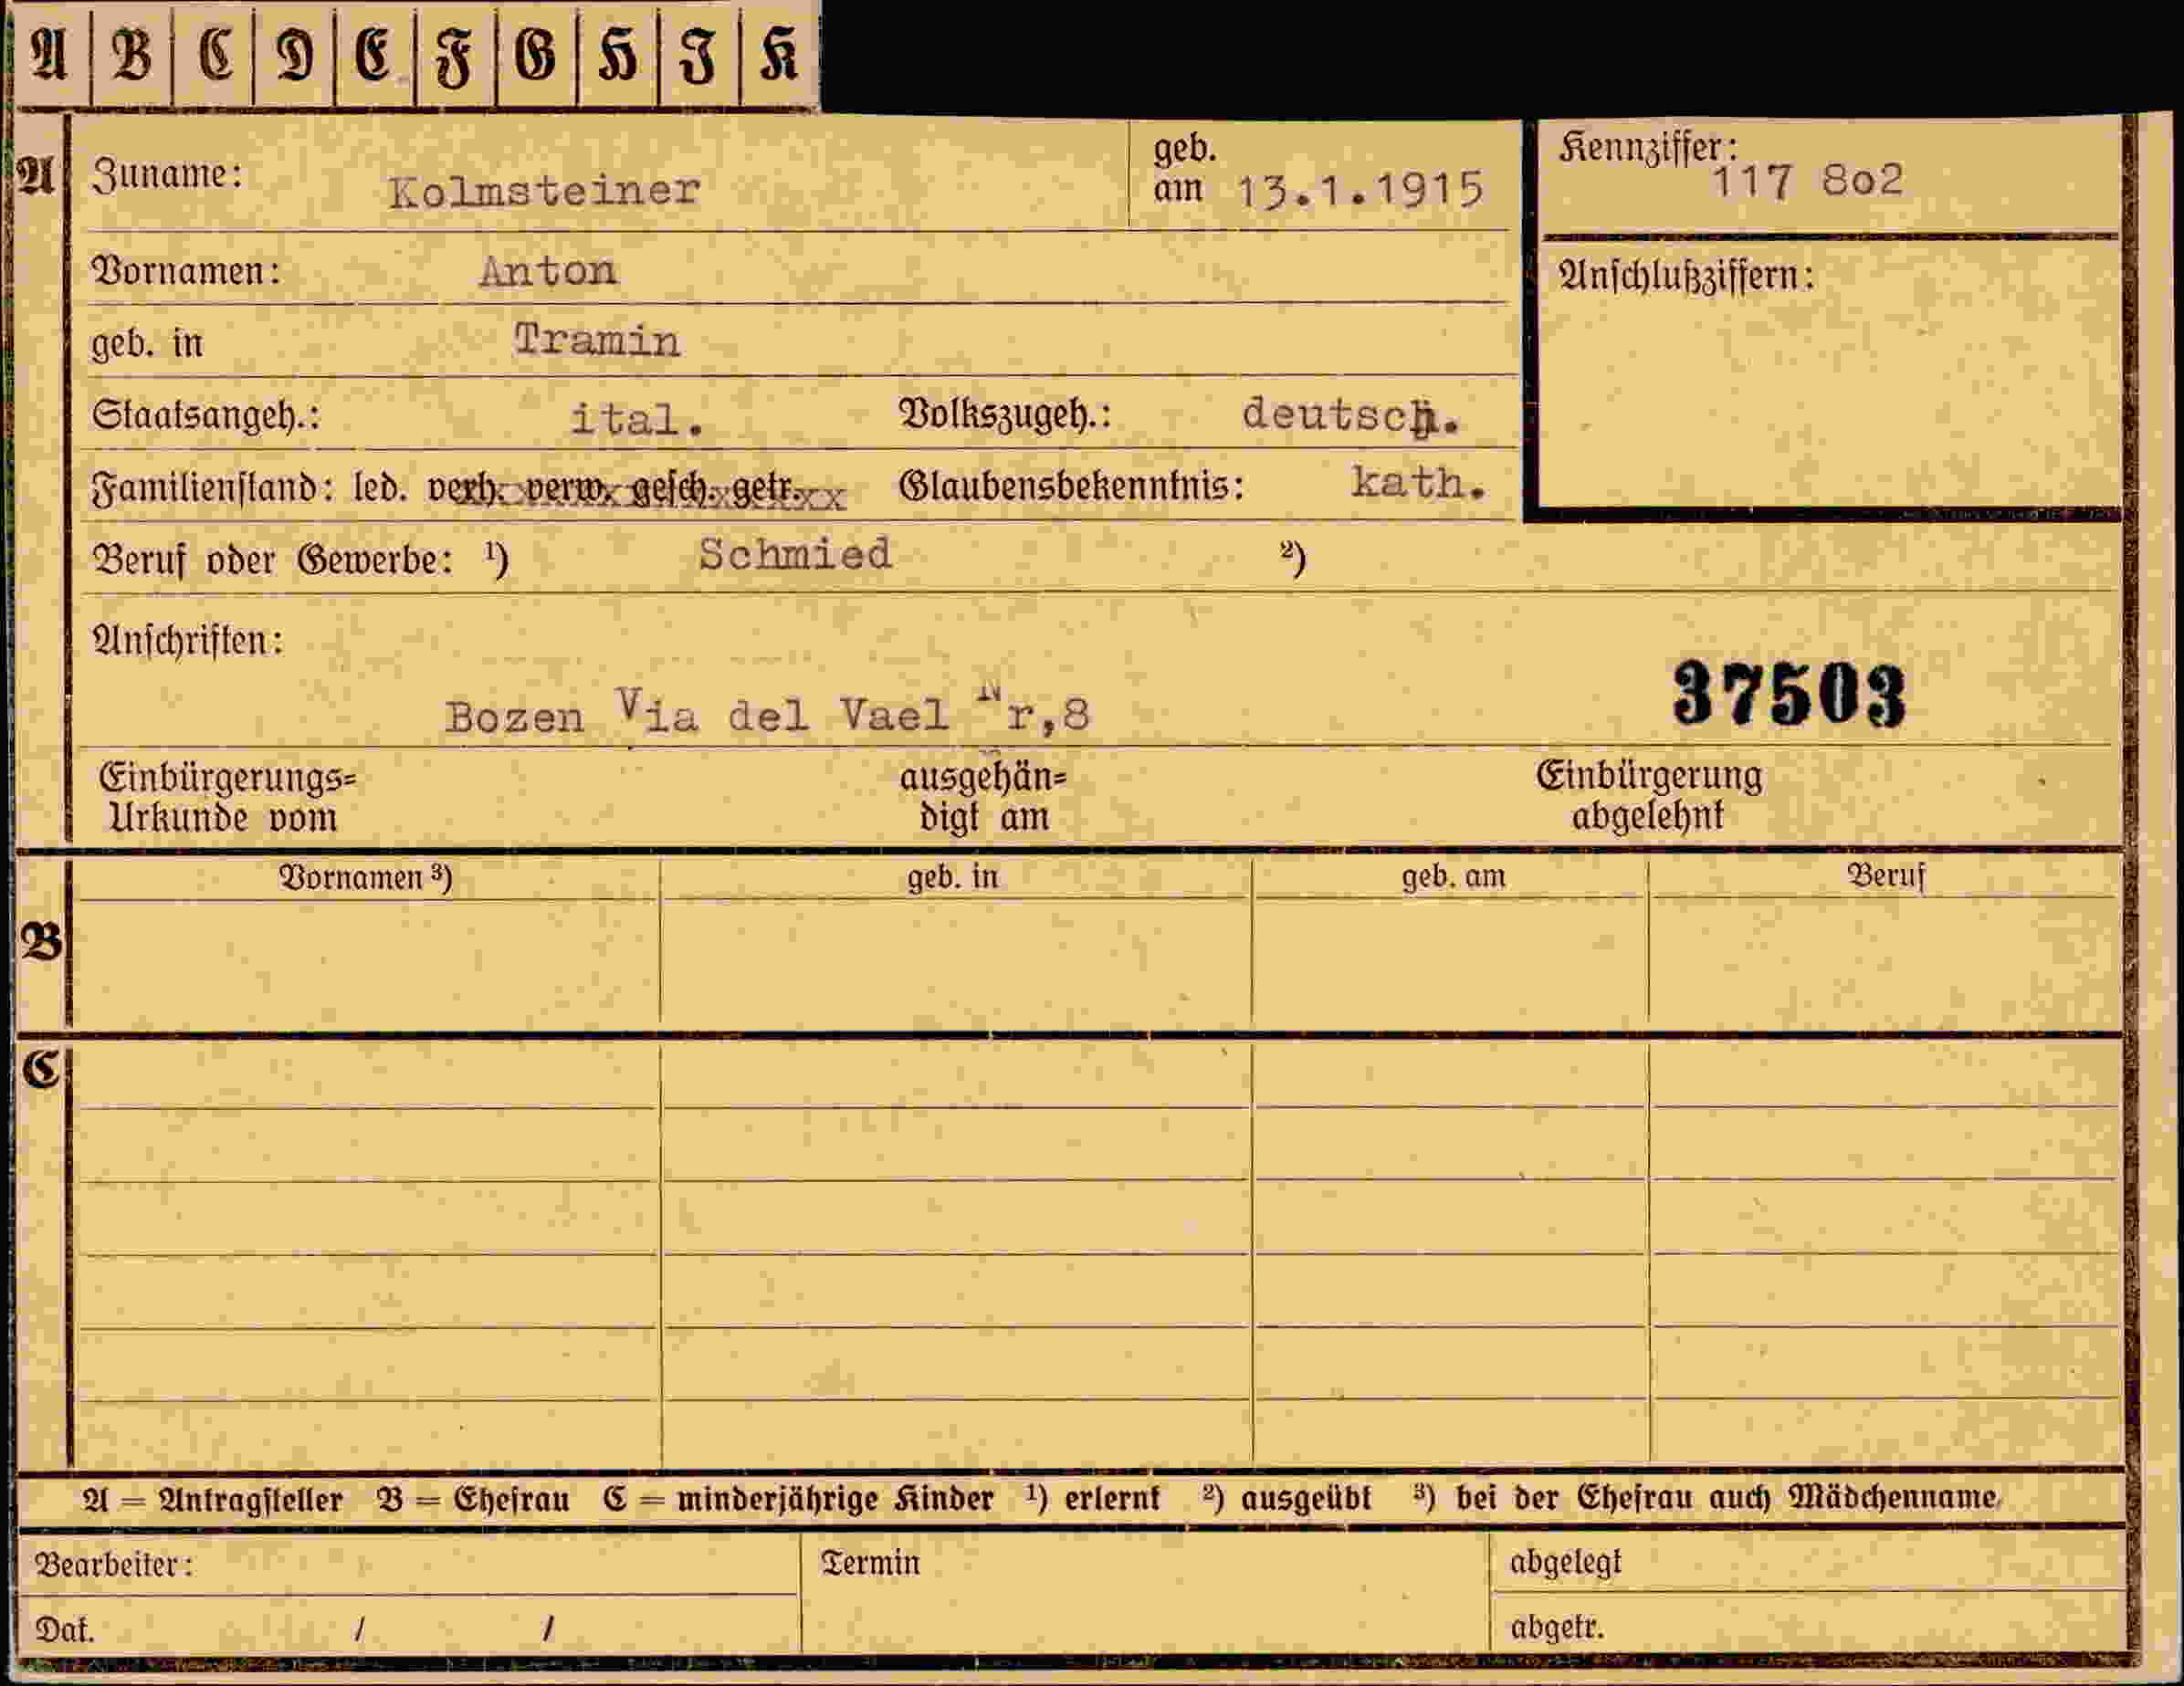 A B C D E F G H I K
A Zuname: Kolmsteiner geb. am 13.1.1915 Kennziffer: 117 8o2
Vornamen: Anton Anschlußziffern:
geb. in Tramin
Staatsangeh.: ital. Volkszugeh.: deutsch.
Familienstand: led. verh. verw. gesch. getr. Glaubensbekenntnis: kath.
Beruf oder Gewerbe: ¹) Schmied ²)
Anschriften:
Bozen Via del Vael Nr,8 37503
Einbürgerungs= ausgehän= Einbürgerung
Urkunde vom digt am abgelehnt
Vornamen ³) geb. in geb. am Beruf
B
C
A = Antragsteller B = Ehefrau C = minderjährige Kinder ¹) erlernt ²) ausgeübt ³) bei der Ehefrau auch Mädchenname
Bearbeiter: Termin abgelegt
Dat. / / abgetr.